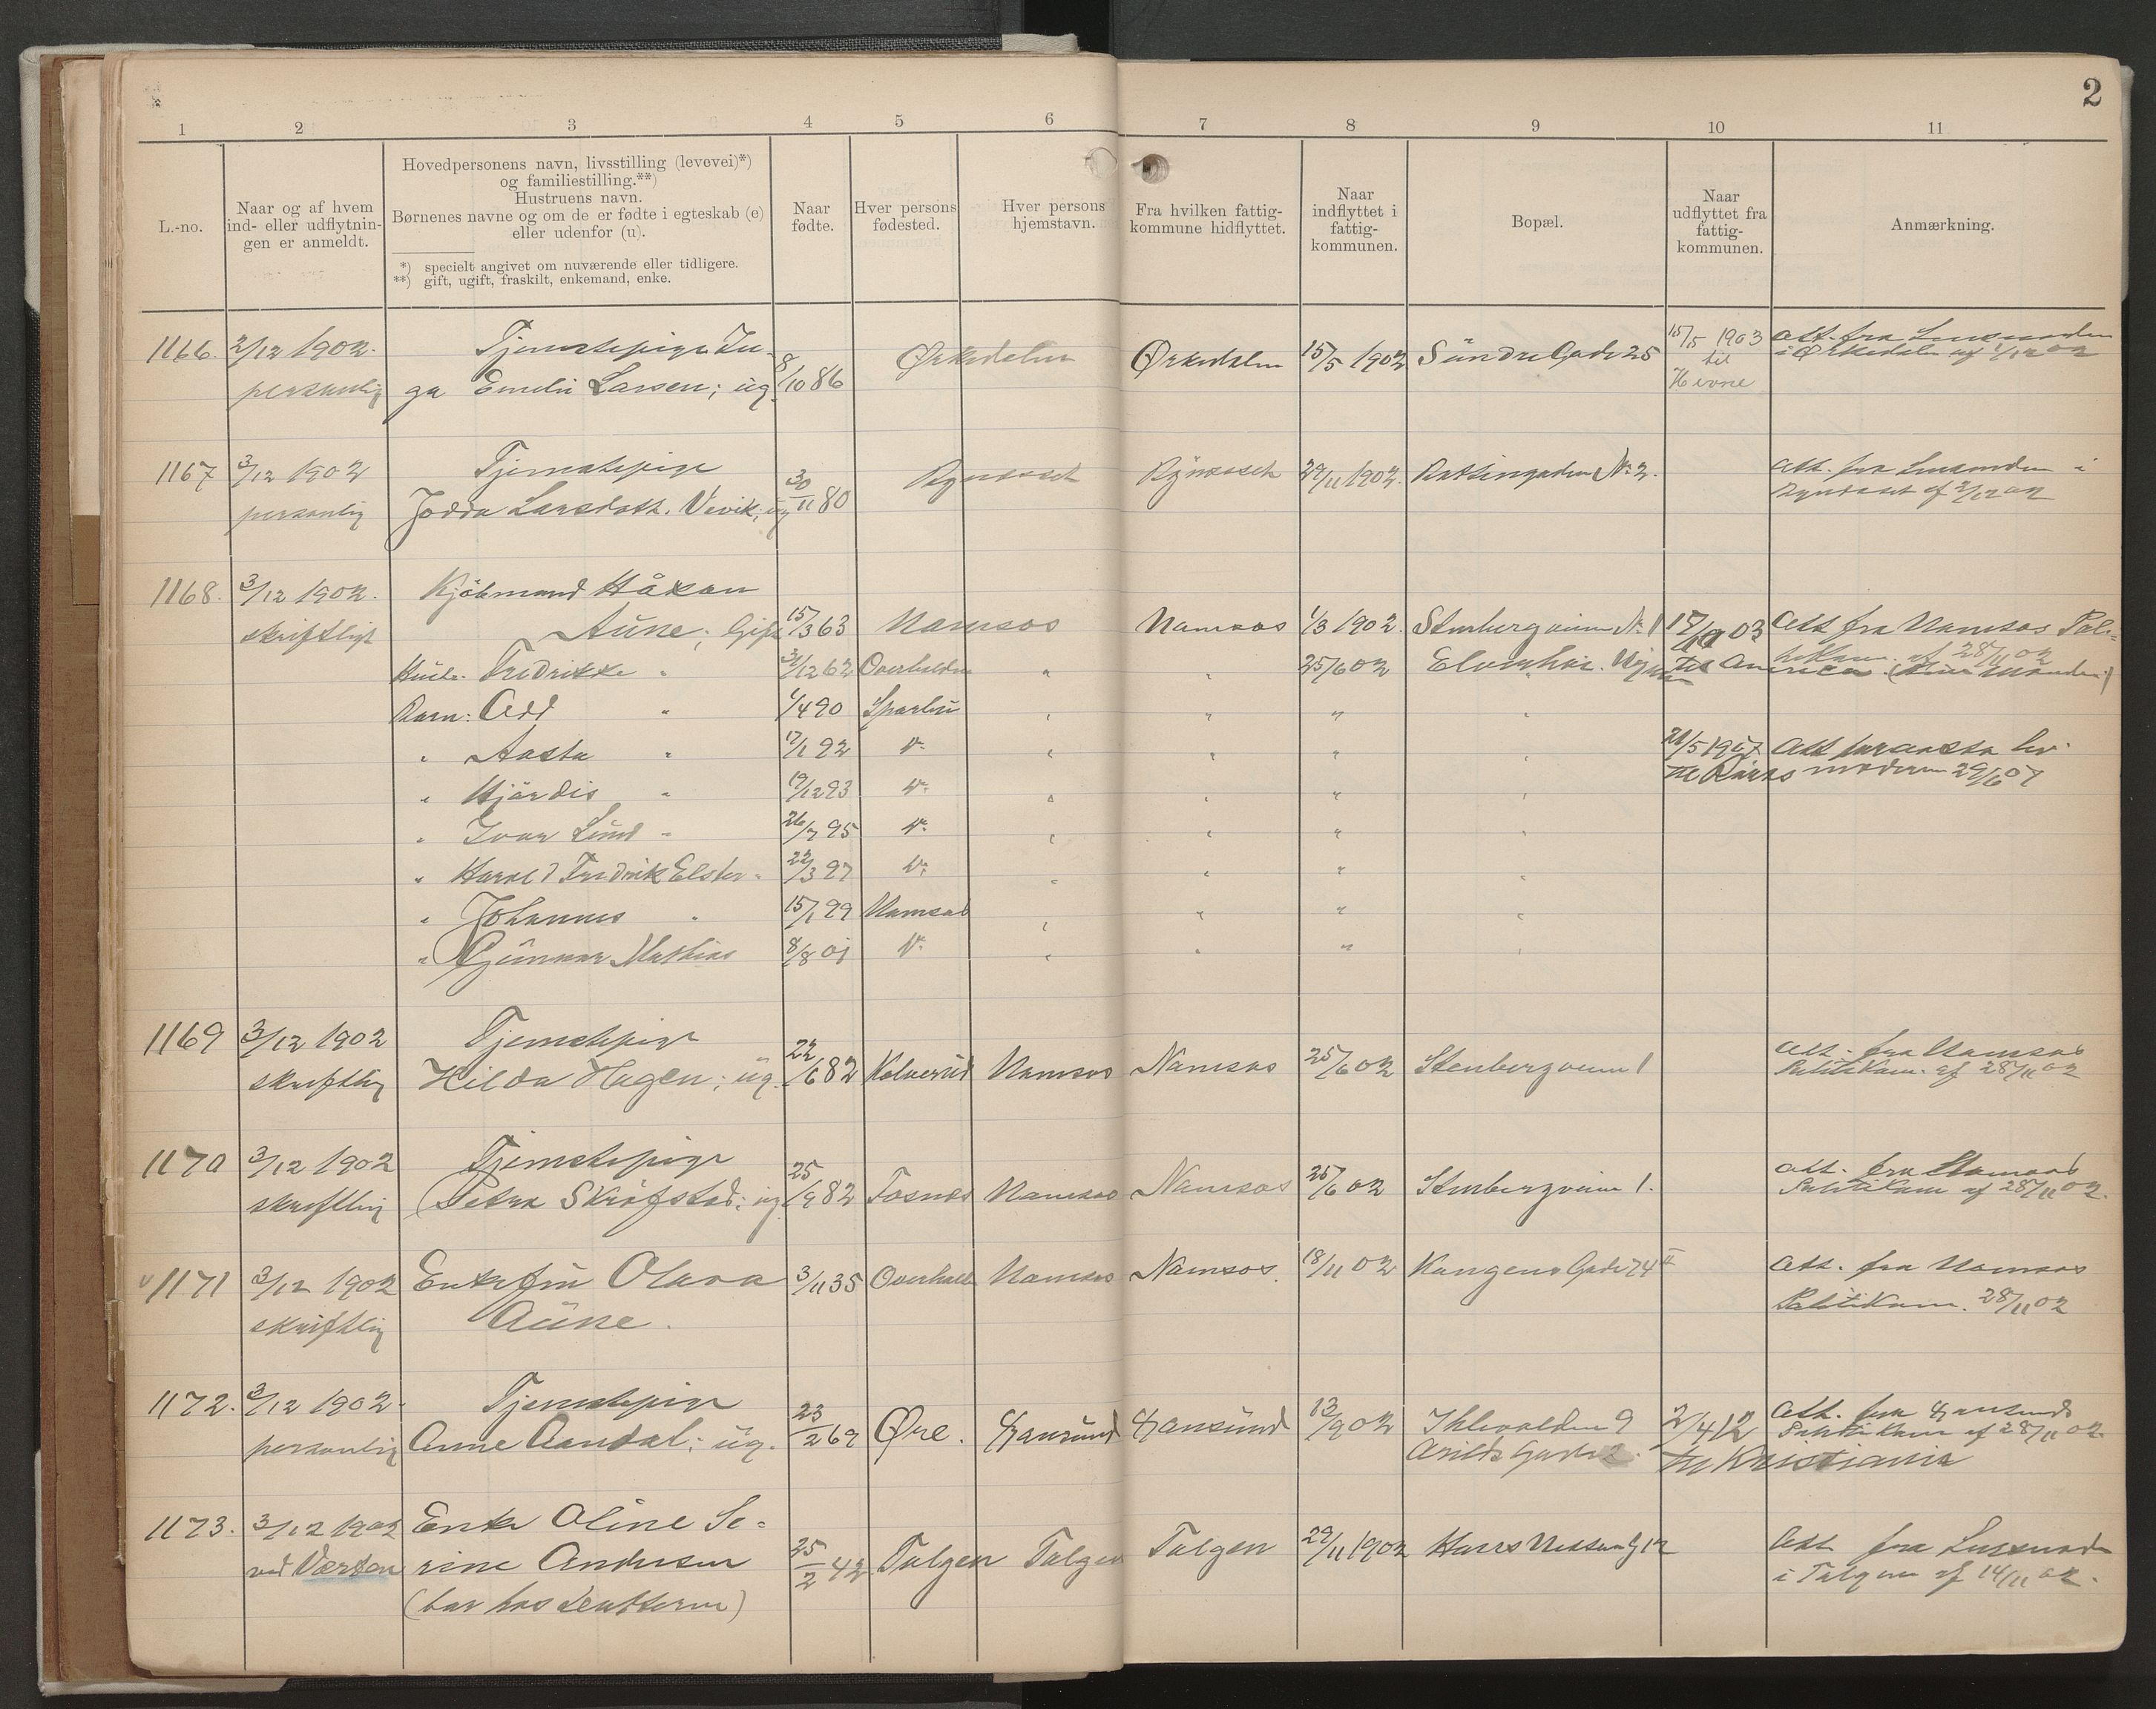 2
1 2 3 4 5 6 7 8 9 10 11
L.-no.
Naar og af hvem
ind- eller udflytnin-
gen er anmeldt.
Hovedpersonens navn, livsstilling (levevei)*)
og familiestilling.**)
Hustruens navn.
Børnenes navne og om de er fødte i egteskab (e)
eller udenfor (u).
*) specielt angivet om nuværende eller tidligere.
**) gift, ugift, fraskilt, enkemand, enke.
Naar
fødte.
Hver persons
fødested.
Hver persons
hjemstavn.
Fra hvilken fattig-
kommune hidflyttet.
Naar
indflyttet i
fattig-
kommunen.
Bopæl.
Naar
udflyttet fra
fattig-
kommunen.
Anmærkning.
1166. 2/12 1902. Tjenestepige In- 8/10 86 Ørkedalen Ørkedalen 15/5 1902 Søndre Gade 25 15/5 1903 Att. fra Lensmanden
personlig ga Emelie Larsen; ug. til i Ørkedalen af 1/12 02
Hevne
1167 3/12 1902 Tjenestepige 30/11 80 Bynesset Bynesset 29/11 1902. No 2. Att. fra Lensmanden i
personlig Jodda Larsdatt. Vevik; ug Byneset af 2/12 02
1168. 3/12 1902. Kjøbmand Håkon
skriftligt Aune; Gift 15/3 63 Namsos Namsos 1/3 1902. Stenbergveien No 1 03 Att fra Namsos Poli-
Hustr. Fredrikke " 31/12 62 Overhalden " " 25/6 02 til America (kun Manden)
af 28/11 02
Barn: Odd " 1/4 90 Sparbu " " " "
" Aasta " 17/1 92 " " " " " 21/5 1907 Att for Aasta lev.
til Røros moderen 29/6 07
" Hjørdis " 19/12 93 " " " " "
" Ivar Lund " 26/7 95 " " " " "
" Harald Fredrik Elster " 22/3 97 " " " " "
" Johannes " 15/1 99 Namsos " " " "
" Gunnar Mathias 8/8 01 " " " " "
1169 3/12 1902 Tjenestepige
skriftlig Hilda Hagen; ug. 22/6 82 Kolvereid Namsos Namsos 25/6 02 Stenbergveien 1 Att. fra Namsos
Politikam. af 28/11 02
1170 3/12 1902 Tjenestepige
skriftlig Petra Skrøfstad; ug. 25/9 82 Fosnes Namsos Namsos 25/6 02 Stenbergveien 1. Att. fra Namsos
Politikam af 28/11 02.
1171 3/12 1902 Enkefru Olava 3/11 35 Overhall Namsos Namsos. 18/11 02 Kongens Gade 74 II Att. fra Namsos
skriftlig Aune. Politikam. 28/11 02
1172. 3/12 1902. Tjenestepige
personlig Anne Aandal; ug. 23/2 69 Øre. Xansund Xansund 13/9 02 Ihlevolden 9 2/4 12 Att. fra Xansunds
Arilds Gade 2. til Kristiania Politikam af 28/11 02.
1173. 3/12 1902 Enke Oline Se-
ved Værten rine Andersen 25/2 42. Tolgen Tolgen Tolgen 29/11 1902 Hans Nissens G 12 Att fra Lensmanden
(bor hos Datteren) i Tolgen af 14/11 02.